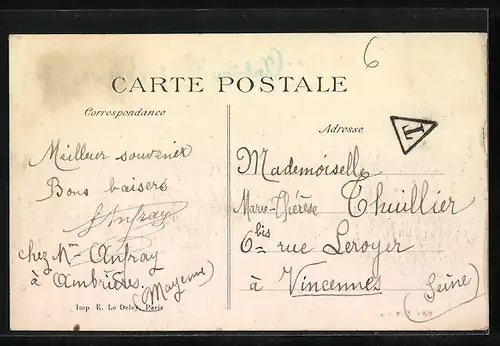 6
CARTE POSTALE
Correspondance
Adresse
T
Meilleur souvenir
Bons baisers
chez Mme Anfray
à Ambrières
(Mayenne)
Mademoiselle
Marie-Thérèse Thuillier
6 bis rue Leroyer
à Vincennes
(Seine)
Imp E. Le Deley, Paris